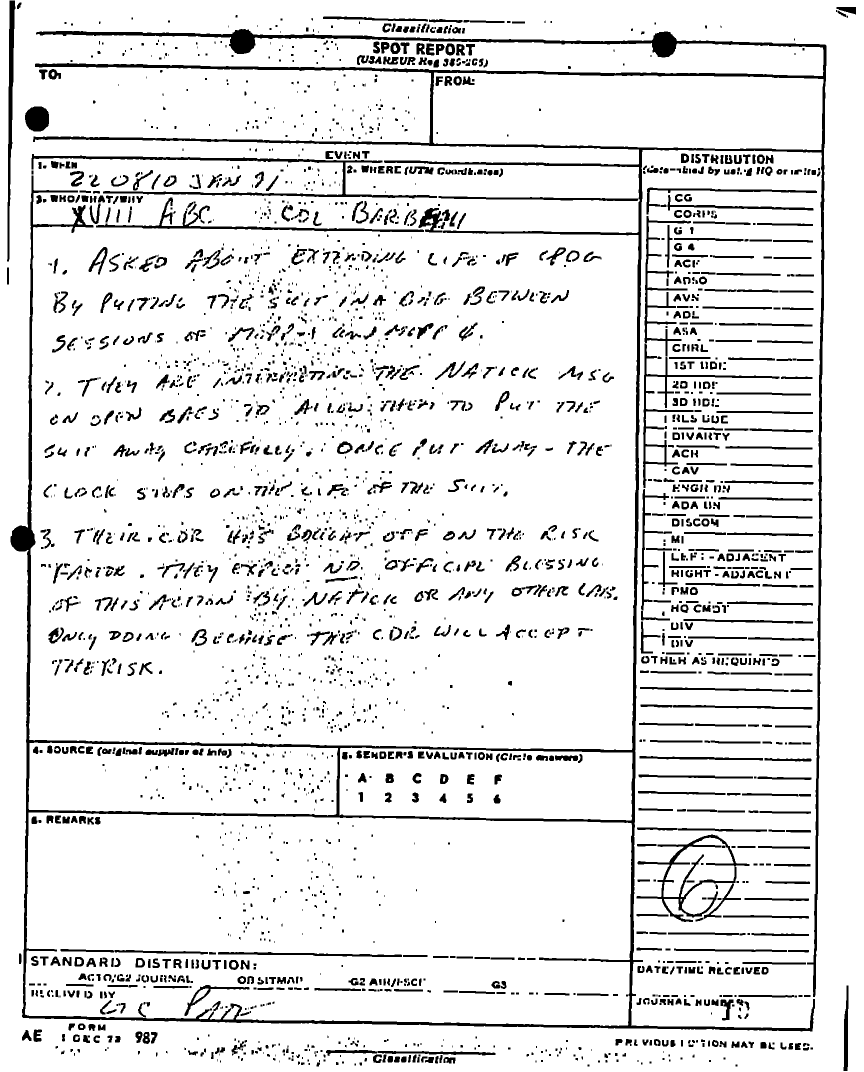 Classification
SPOT REPORT
(USAREUR Reg 385-265)
TO:
FROM:
EVENT
1. WHEN
22 0810 JAN 91
2. WHERE (UTM Coordinates)
3. WHO/WHAT/WHY
XVIII ABC COL BARBEAU
1. ASKED ABOUT EXTENDING LIFE OF CPOG
BY PUTTING THE SUIT IN A BAG BETWEEN
SESSIONS OF MOPP-1 and MOPP 4.
2. THEY ARE INTERPRETING THE NATICK MSG
ON OPEN BAGS TO ALLOW THEM TO PUT THE
SUIT AWAY CAREFULLY. ONCE PUT AWAY - THE
CLOCK STOPS ON THE LIFE OF THE SUIT.
3. THEIR CDR HAS BOUGHT OFF ON THE RISK
FACTOR. THEY EXPECT NO OFFICIAL BLESSING
OF THIS ACTION BY NATICK OR ANY OTHER LAB.
ONLY DOING BECAUSE THE CDR WILL ACCEPT
THE RISK.
4. SOURCE (original supplier of info)
5. SENDER'S EVALUATION (Circle answers)
A B C D E F
1 2 3 4 5 6
6. REMARKS
DISTRIBUTION
(determined by using HQ or units)
CG
CORPS
G 1
G 4
ADSO
AVN
ADL
ASA
CHRL
1ST BDE
2D BDE
3D BDE
RES BDE
DIVARTY
ACH
CAV
ENGR BN
ADA BN
DISCOM
MI
LEFT - ADJACENT
RIGHT - ADJACENT
PMO
HQ CMDT
DIV
DIV
OTHER AS REQUIRED
6
STANDARD DISTRIBUTION:
ACTO/G2 JOURNAL OB SITMAP G2 AIR/FSCE G3
RECEIVED BY
DATE/TIME RECEIVED
JOURNAL NUMBER
AE FORM 1 DEC 72 987
PREVIOUS EDITION MAY BE USED.
Classification